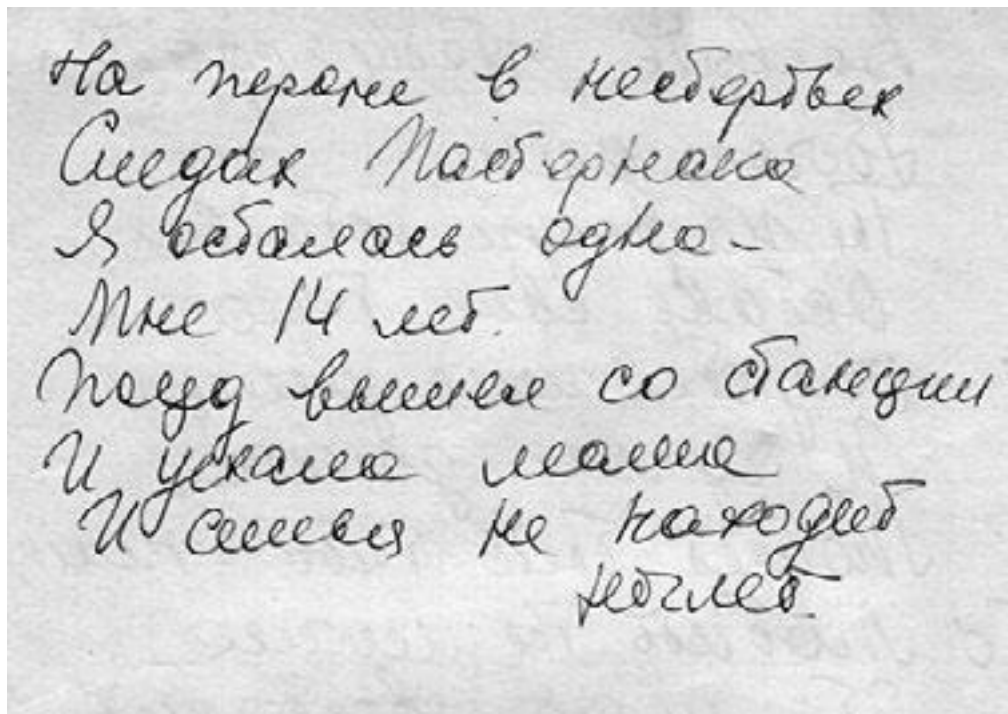 На пероне в нестертых
Следах Пастернака
Я осталась одна –
Мне 14 лет.
Поезд вышел со станции
И уехала мама
И семья не находит